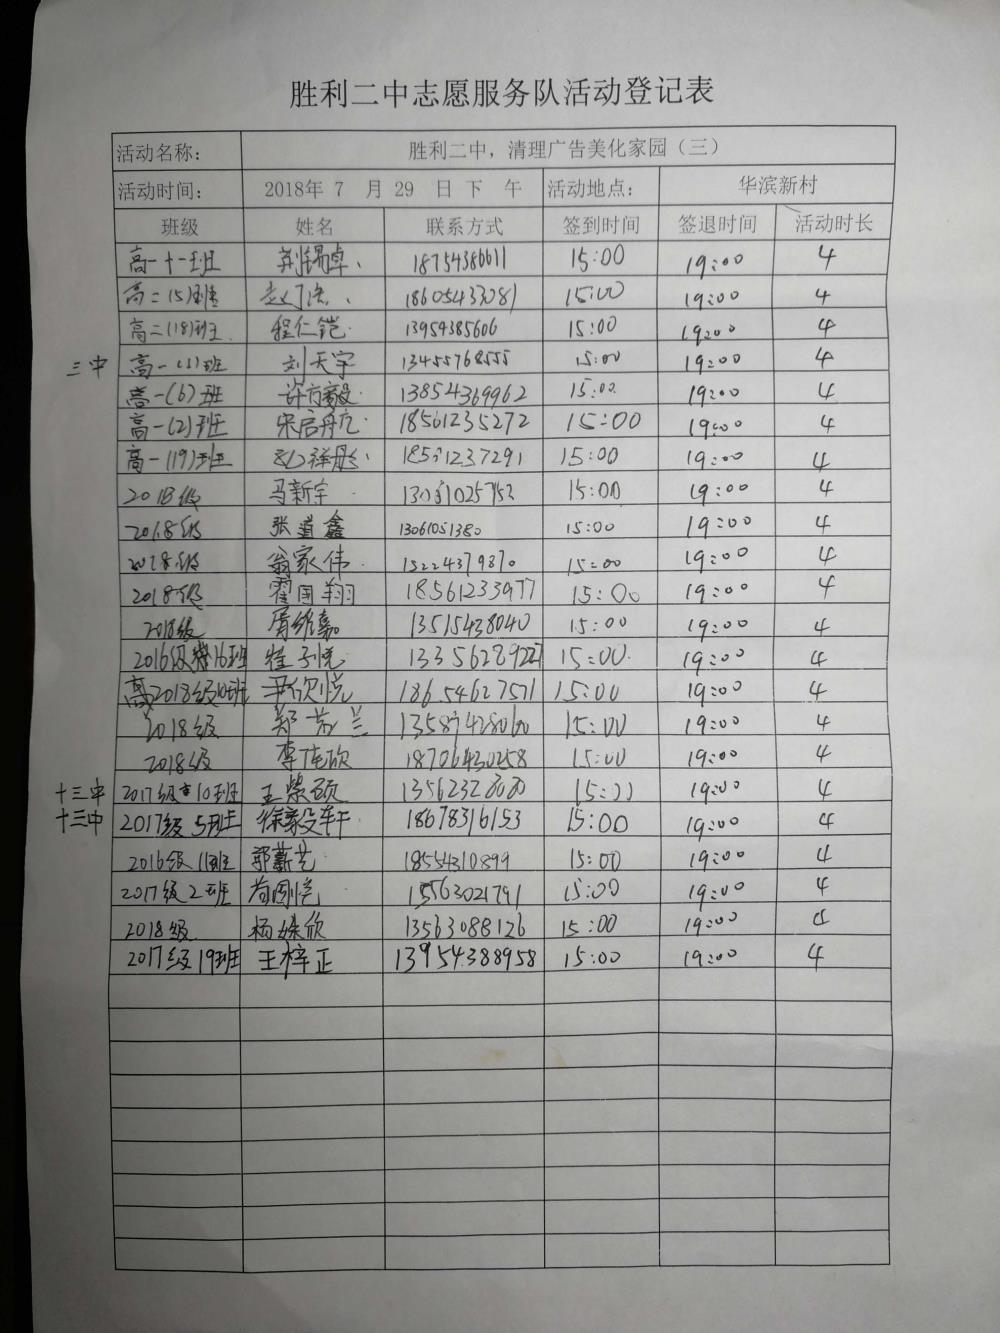 胜利二中志愿服务队活动登记表
活动名称： 胜利二中，清理广告美化家园（三）
活动时间： 2018年 7 月 29 日 下 午 活动地点： 华滨新村
班级 姓名 联系方式 签到时间 签退时间 活动时长
高一十一班 荆锡卓 18754386611 15:00 19:00 4
高二(5)班 18605433081 15:00 19:00 4
高二(18)班 程仁铠 13954385606 15:00 19:00 4
三中 高一(3)班 刘天宇 13455768555 15:00 19:00 4
高一(6)班 许方毅 13854369962 15:00 19:00 4
高一(2)班 宋启舟 18561235272 15:00 19:00 4
高一(19)班 18561237291 15:00 19:00 4
2018级 马新宇 15:00 19:00 4
2018级 张道鑫 13061051380 15:00 19:00 4
2018级 翁家伟 15224379870 15:00 19:00 4
2018级 霍国翔 18561233977 15:00 19:00 4
2018级 13515438040 15:00 19:00 4
2016级 16班 15:00 19:00 4
高2018级10班 尹欣悦 18654627571 15:00 19:00 4
2018级 郑 兰 15:00 19:00 4
2018级 李佳欣 18706430258 15:00 19:00 4
十三中 2017级10班 王紫硕 15:00 19:00 4
十三中 2017级 5班 徐毅轩 18678316153 15:00 19:00 4
2016级 11班 郭薪艺 18554310899 15:00 19:00 4
2017级2班 15563021791 15:00 19:00 4
2018级 杨姝欣 13563088126 15:00 19:00 4
2017级19班 王梓正 13954388958 15:00 19:00 4